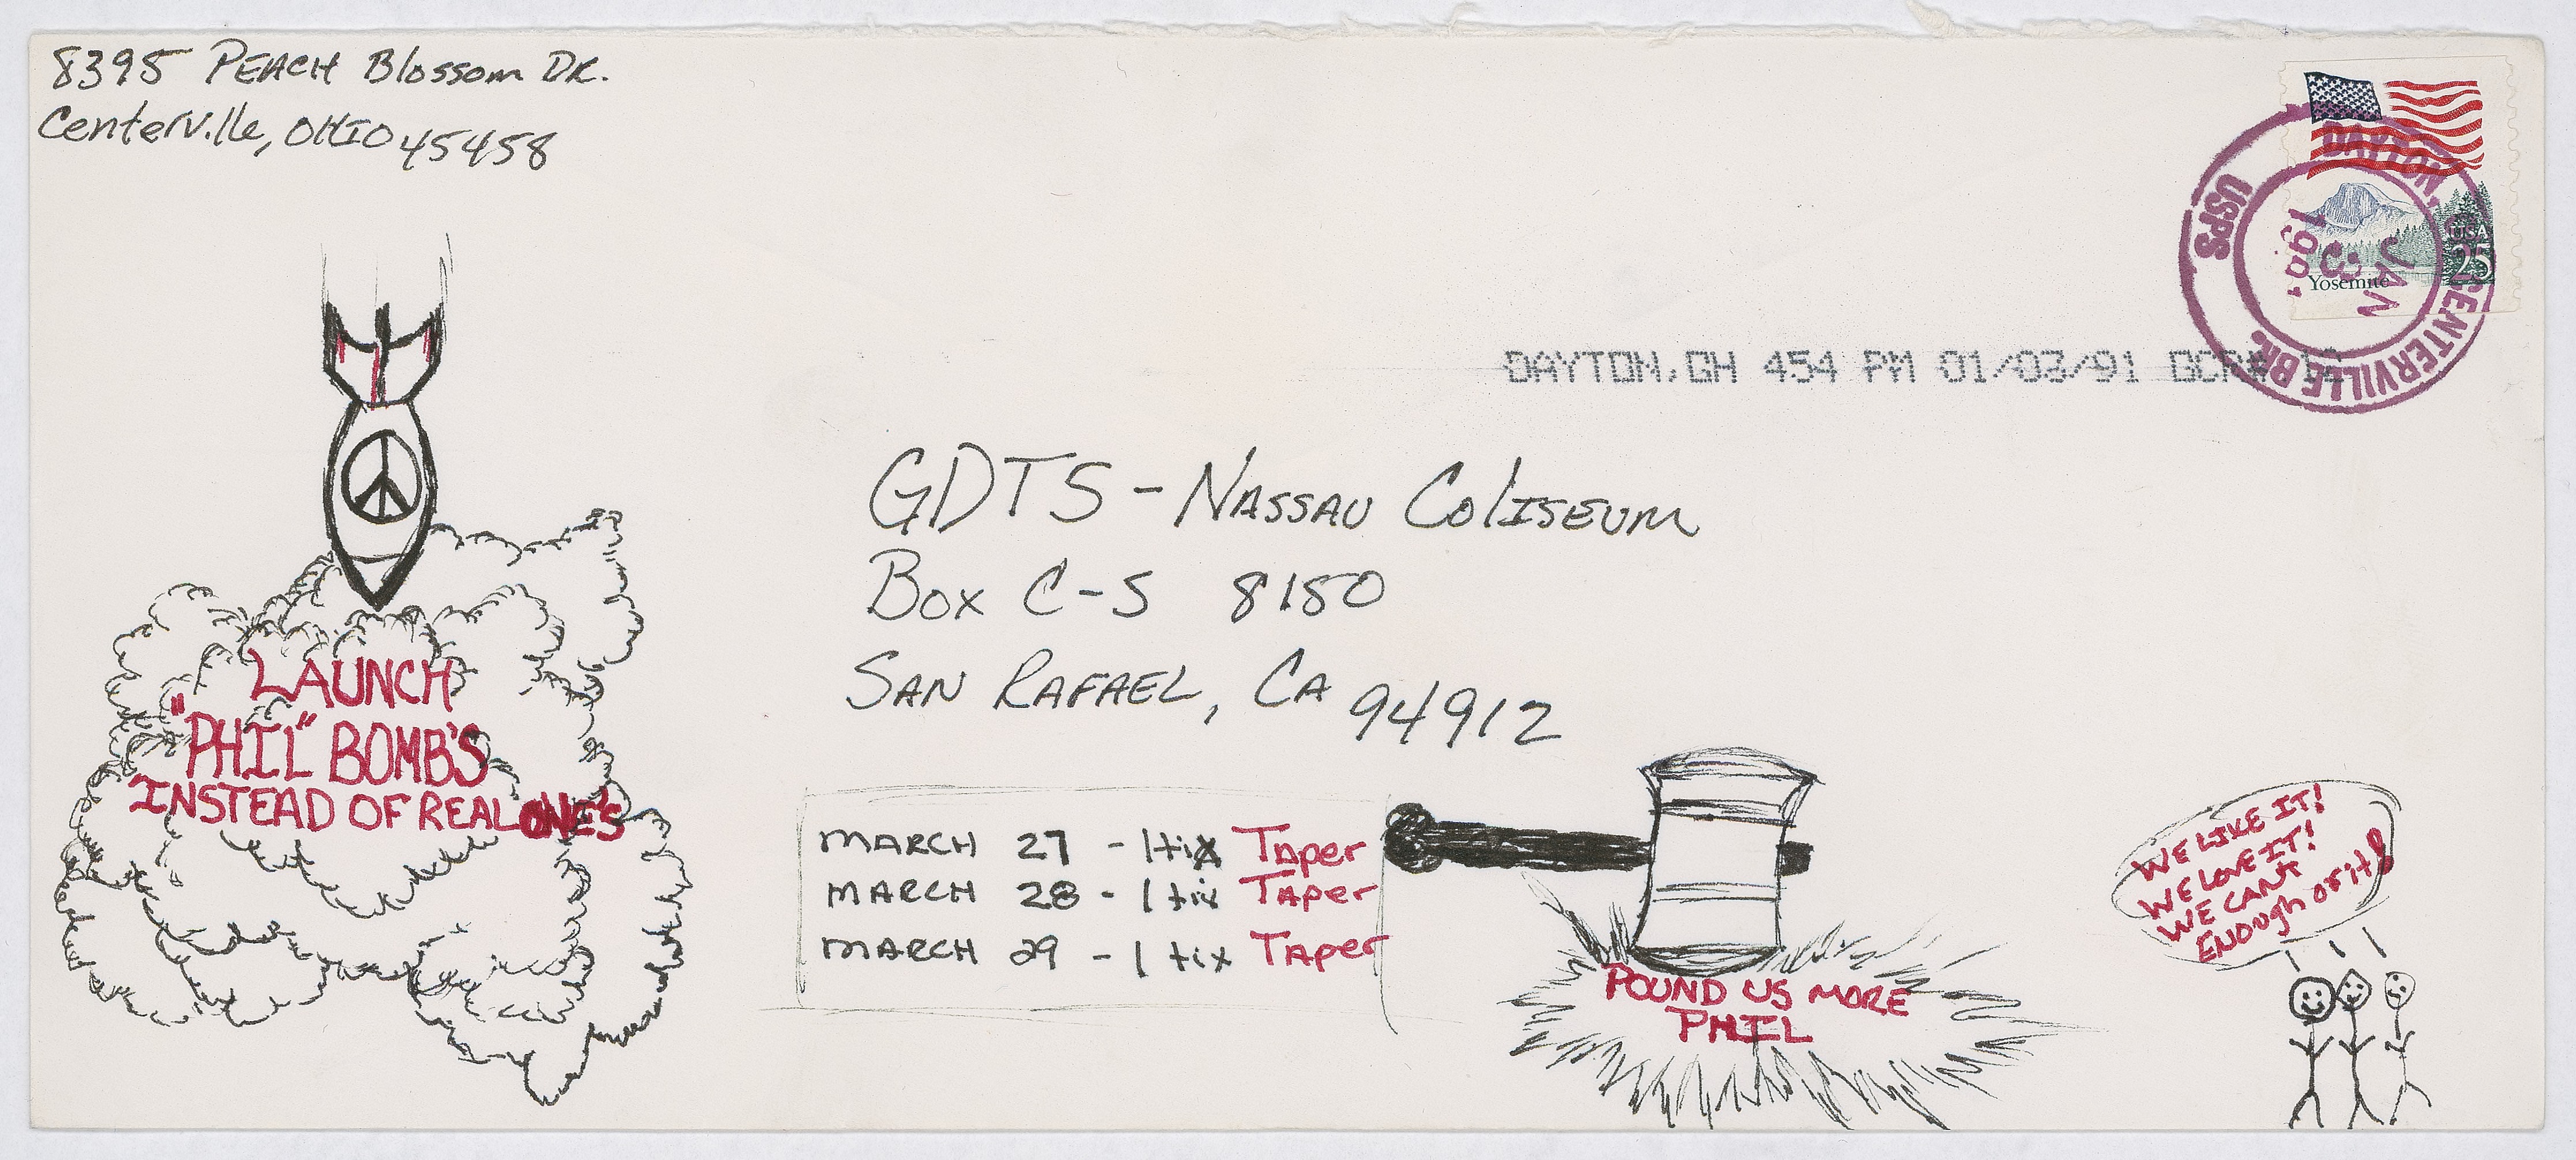 8395 PEACH Blossom DR.
Centerville, OHIO 45458
USA
25
Yosemite
DAYTON,
CENTERVILLE BR.
USPS
JAN
3
DAYTON, OH 454 PM 01/03/91
GDTS - NASSAU COLISEUM
Box C-S 8150
SAN RAFAEL, CA 94912
LAUNCH
"PHIL" BOMB'S
INSTEAD OF REAL ONE'S
MARCH 27 - 1 tix Taper
MARCH 28 - 1 tix TAPer
MARCH 29 - 1 tix TAPer
POUND US MORE
PHIL
WE LIKE IT!
WE LOVE IT!
WE CANT
ENOUGH OF it!